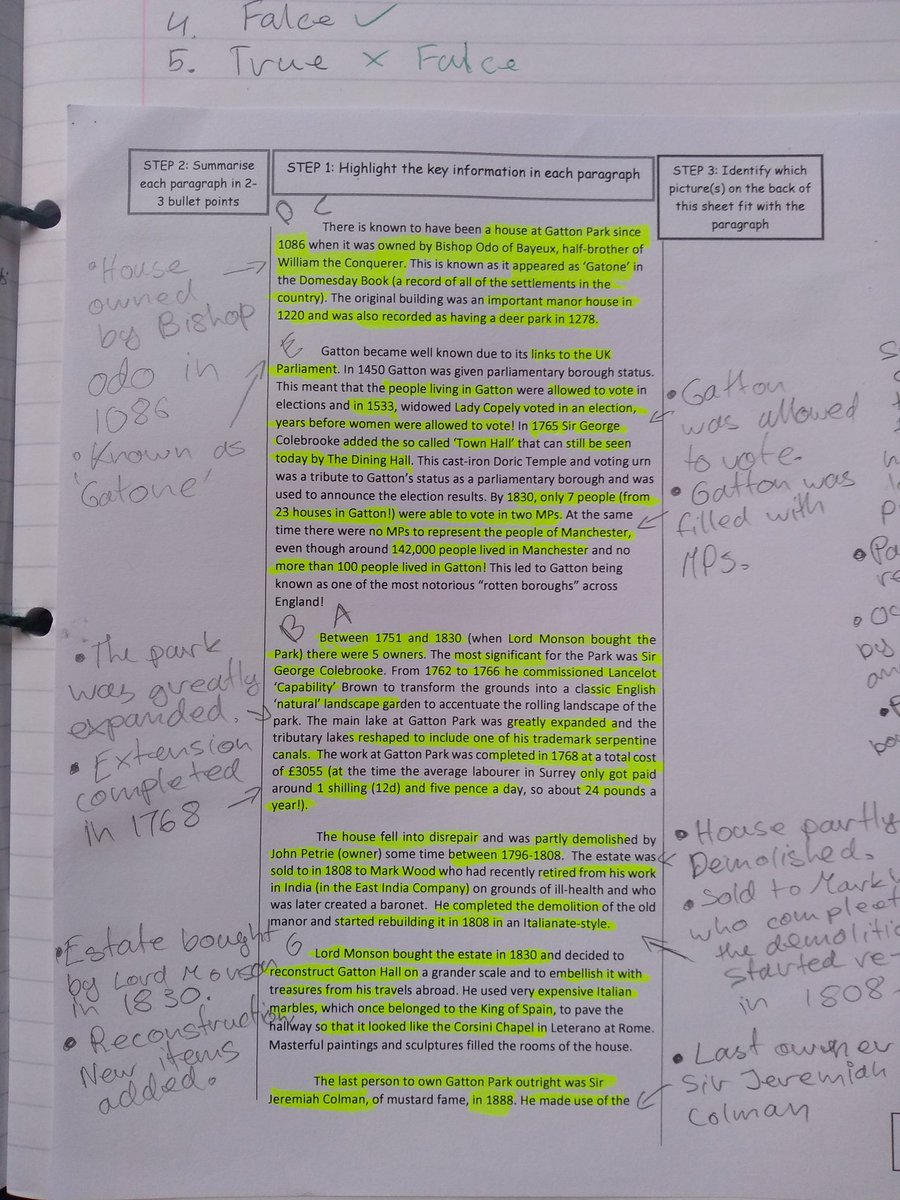 4. Falce ✓
5. True × Falce
STEP 2: Summarise
each paragraph in 2-
3 bullet points
STEP 1: Highlight the key information in each paragraph
STEP 3: Identify which
picture(s) on the back of
this sheet fit with the
paragraph
D C
There is known to have been a house at Gatton Park since
1086 when it was owned by Bishop Odo of Bayeux, half-brother of
William the Conquerer. This is known as it appeared as ‘Gatone’ in
the Domesday Book (a record of all of the settlements in the
country). The original building was an important manor house in
1220 and was also recorded as having a deer park in 1278.
• House
owned
by Bishop
odo in
1086
• Known as
'Gatone'
E
Gatton became well known due to its links to the UK
Parliament. In 1450 Gatton was given parliamentary borough status.
This meant that the people living in Gatton were allowed to vote in
elections and in 1533, widowed Lady Copely voted in an election,
years before women were allowed to vote! In 1765 Sir George
Colebrooke added the so called ‘Town Hall’ that can still be seen
today by The Dining Hall. This cast-iron Doric Temple and voting urn
was a tribute to Gatton’s status as a parliamentary borough and was
used to announce the election results. By 1830, only 7 people (from
23 houses in Gatton!) were able to vote in two MPs. At the same
time there were no MPs to represent the people of Manchester,
even though around 142,000 people lived in Manchester and no
more than 100 people lived in Gatton! This led to Gatton being
known as one of the most notorious “rotten boroughs” across
England!
• Gatton
was allowed
to vote.
• Gatton was
filled with
MPs.
B A
Between 1751 and 1830 (when Lord Monson bought the
Park) there were 5 owners. The most significant for the Park was Sir
George Colebrooke. From 1762 to 1766 he commissioned Lancelot
‘Capability’ Brown to transform the grounds into a classic English
‘natural’ landscape garden to accentuate the rolling landscape of the
park. The main lake at Gatton Park was greatly expanded and the
tributary lakes reshaped to include one of his trademark serpentine
canals. The work at Gatton Park was completed in 1768 at a total cost
of £3055 (at the time the average labourer in Surrey only got paid
around 1 shilling (12d) and five pence a day, so about 24 pounds a
year!).
• The park
was greatly
expanded.
• Extension
completed
in 1768
The house fell into disrepair and was partly demolished by
John Petrie (owner) some time between 1796-1808. The estate was
sold to in 1808 to Mark Wood who had recently retired from his work
in India (in the East India Company) on grounds of ill-health and who
was later created a baronet. He completed the demolition of the old
manor and started rebuilding it in 1808 in an Italianate-style.
• House partly
Demolished.
• Sold to Mark
who compleat
the demolitio
started re-
in 1808
G
Lord Monson bought the estate in 1830 and decided to
reconstruct Gatton Hall on a grander scale and to embellish it with
treasures from his travels abroad. He used very expensive Italian
marbles, which once belonged to the King of Spain, to pave the
hallway so that it looked like the Corsini Chapel in Leterano at Rome.
Masterful paintings and sculptures filled the rooms of the house.
• Estate bought
by Lord Monson
in 1830.
• Reconstruction,
New items
added.
The last person to own Gatton Park outright was Sir
Jeremiah Colman, of mustard fame, in 1888. He made use of the
• Last owner
Sir Jeremiah
Colman